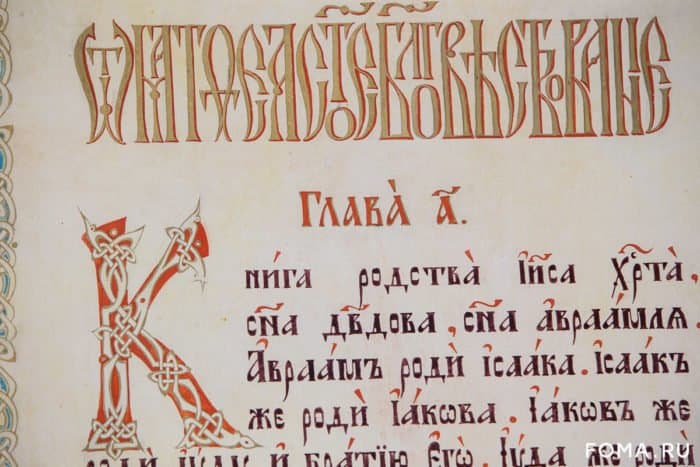 Ѿ МАТѲЕА СТ҃ОЕ БЛ҃ГОВѢСТВОВАНІЕ
Глава̀ а҃.
Кни́га родства̀ І҆и҃са Хр҃та̀.
сн҃а дв҃дова, сн҃а а҆враа́млѧ.
А҆враа́мъ родѝ і҆саа́ка. І҆саа́къ
же родѝ І҆а́кѡва. І҆а́кѡвъ же
родѝ І҆ꙋ́дꙋ и҆ бра́тїю є҆гѡ̀. І҆ꙋ́да же родѝ
FOMA.RU